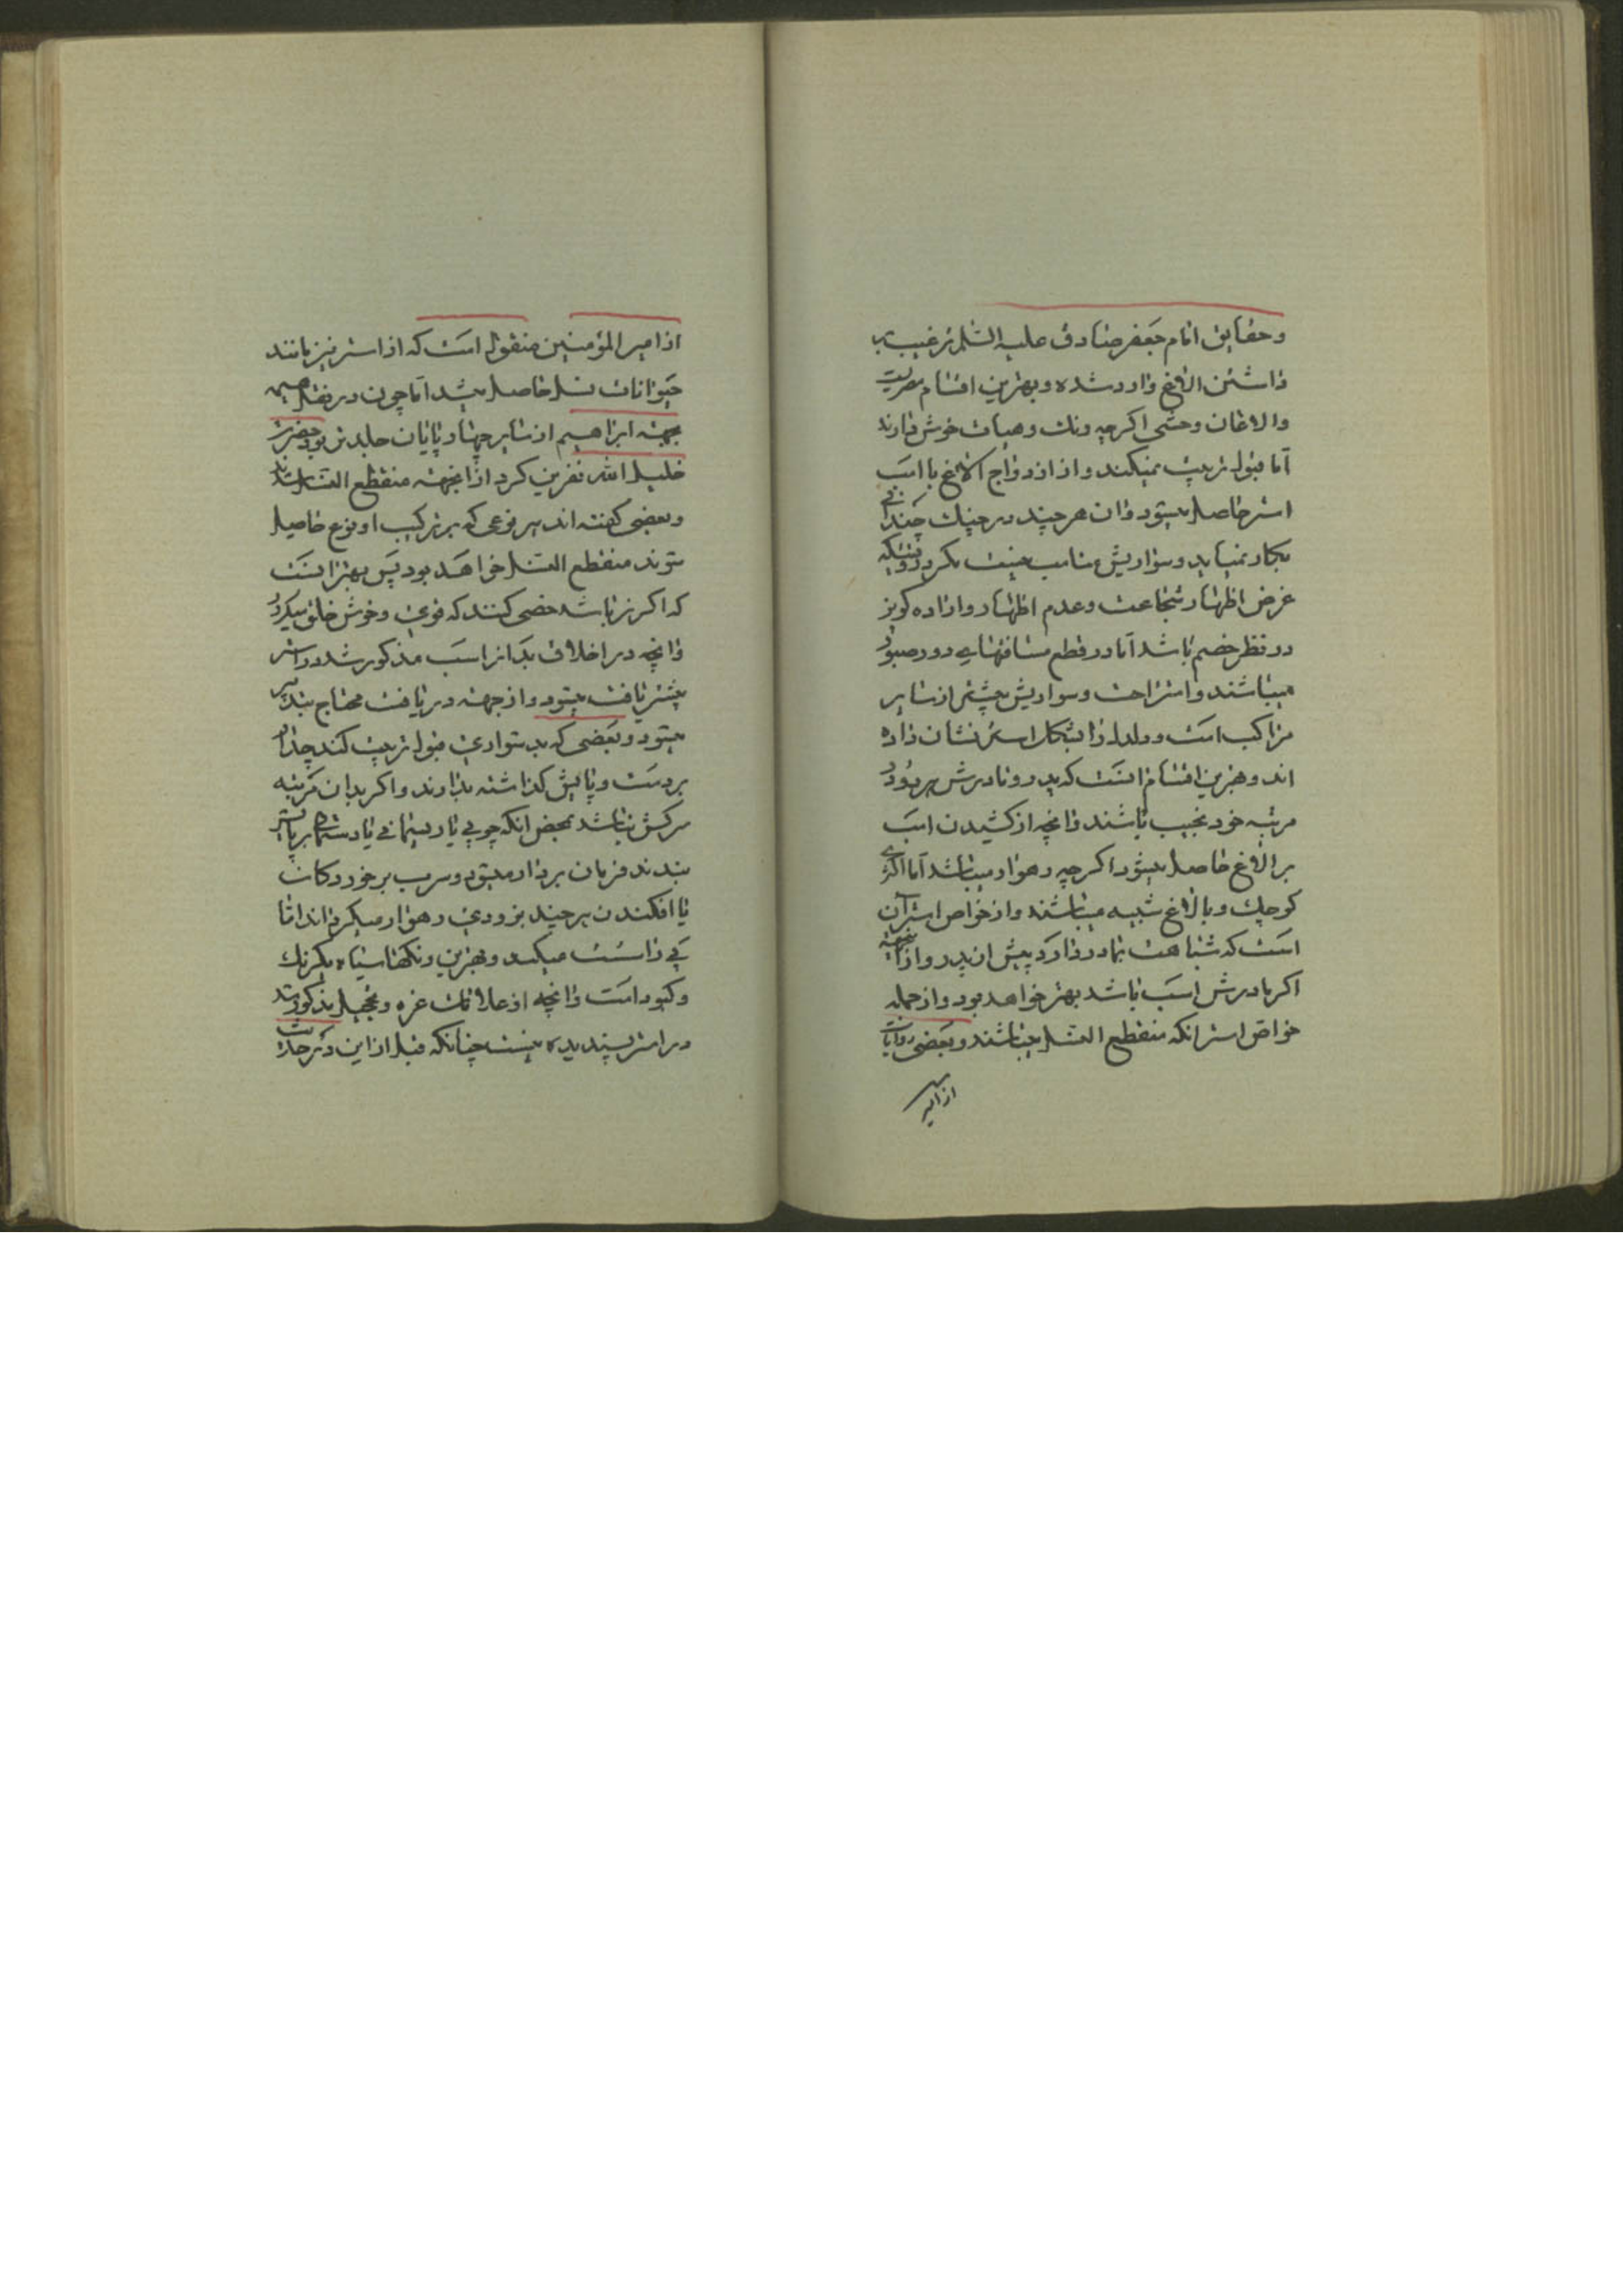 و حقایق امام جعفر صادق علیه السلام ترغیب بر
داشتن الاغ وارد شده و بهترین اقسام مصریت
و الاغان وحشی اکرچه رنك و هیات خوش دارند
اما قبول تربیت نمیکنند و از ازدواج الاغ با اسب
استر حاصل میشود و ان هرچند در جنك چندانی
بکار نمیاید و سواریش مناسب نیست مکر در وقتیکه
غرض اظهار شجاعت و عدم اظهار و اراده کریز
در نظر خصم باشد اما در قطع مسافتهای دور صبور
میباشند و استراحت و سواریش بیشتر از سایر
مراکب است و دلدل را اشکار استر نشان داده
اند و بهترین اقسام انست که پدر و مادرش هر دو در
مرتبه خود نجیب باشند و انچه از کشیدن اسب
بر الاغ حاصل میشود اکرچه رهوار میباشد اما اکثری
کوچك و بالاغ شبیه میباشند و از خواص استر آن
است که شباهت بمادر دارد بیش از پدر و از اینجهة
اکر مادرش اسب باشد بهتر خواهد بود و از جمله
خواص استر انکه منقطع النسل میباشند و بعضی روایات
از امیر
از امیر المؤمنین منقول است که از استر نیز مانند
حیوانات نسل حاصل میشد اما چون در نقل هیمه
بجهته ابراهیم از سایر چهارپایان جلدتر بود حضرت
خلیل الله نفرین کرد از انجهته منقطع النسل شدند
و بعضی کفته اند هر نوعی که بر ترکیب او نوع حاصل
شوند منقطع النسل خواهد بود پس بهتر انست
که اکر نر باشد خصی کنند که قوی و خوش خلق میکردد
و انچه در اخلاق بد از اسب مذکور شد در استر
بیشتر یافت میشود و از جهته دریافت محتاج بتدبیر
میشود و بعضی که بد سواری قبول تربیت کند چدار
بر دست و پایش کذاشته بدارند و اکر بدان مرتبه
سرکش نباشد بمحض انکه چوبی یا ریسمانی یا دستمال بر پایش
ببندند فرمان بردار میشود و سرب بر خورد کان
یا افکندن هر چند بزودی رهوار میکرداند اما
پی را سست میکند و بهترین رنکها سیاه یکرنك
و کبود است و انچه از علامات غره و تحجیل مذکور شد
در استر پسندیده نیست چنانکه قبل از این ذکر